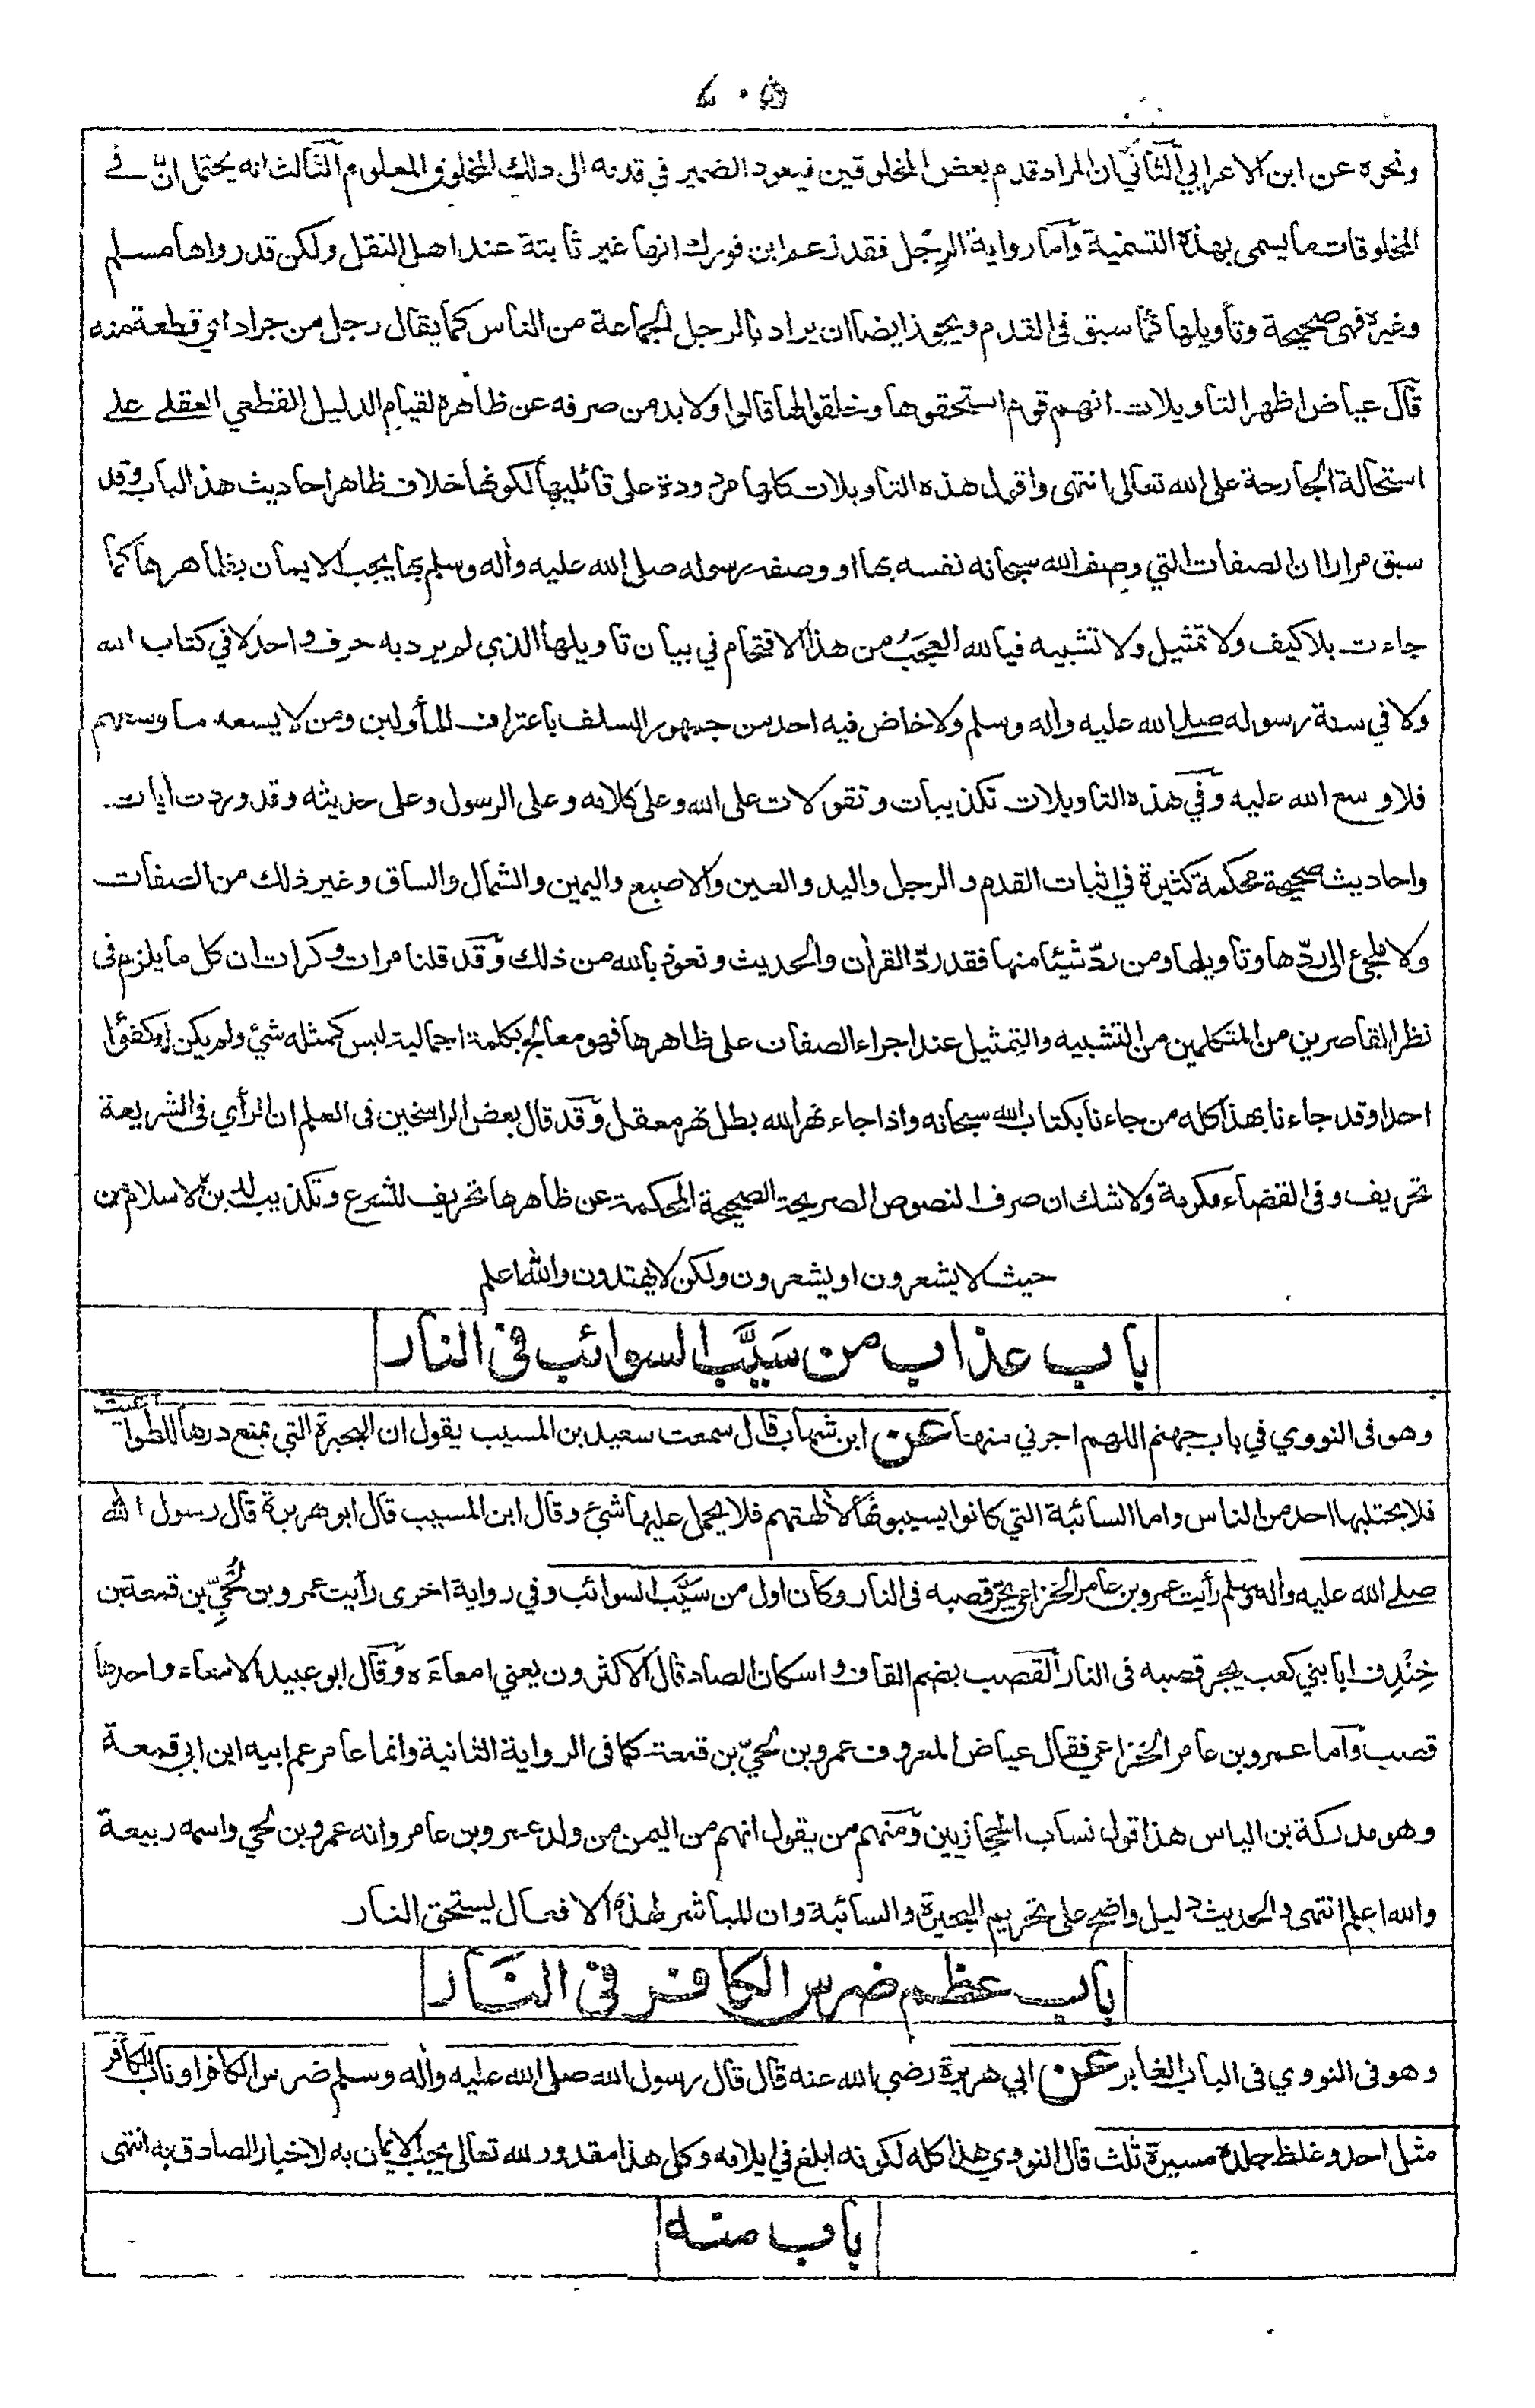 ٤٠٥
ونحوه عن ابن الاعرابي الثاني ان المراد قدم بعض المخلوقين فيعود الضمير في قدمه الى ذلك المخلوق المعلوم الثالث انه يحتمل ان في
المخلوقات ما يسمى بهذه التسمية وأما رواية الرِّجل فقد زعم ابن فورك انها غير ثابتة عند اهل النقل ولكن قد رواها مسلم
وغيره فهى صحيحة وتأويلها كما سبق فى القدم ويجوز ايضا ان يراد بالرجل الجماعة من الناس كما يقال رجل من جراد اي قطعة منه
قال عياض اظهر التاويلات انهم قوم استحقوها وخلقوا لها قالوا ولا بد من صرفه عن ظاهره لقيام الدليل القطعي العقلے علے
استحالة الجارحة على الله تعالى انتهى واقول هذه التاويلات كلها مردودة على قائليها لكونها خلاف ظاهر احاديث هذا الباب وقد
سبق مرارا ان الصفات التي وصف الله سبحانه نفسه بها او وصفه رسوله صلى الله عليه واٰله وسلم بها يجب الايمان بظاهرها كما
جاءت بلا كيف ولا تمثيل ولا تشبيه فيالله العجبُ من هذا الاقتحام في بيان تاويلها الذي لم يرد به حرف واحد لا في كتاب الله
ولا في سنة رسوله صلے الله عليه واله وسلم ولا خاض فيه احد من جمهور السلف باعتراف المأولين ومن لا يسعه ما وسعهم
فلا وسع الله عليه وفي هذه التاويلات تكذيبات وتقولات على الله وعلى كلامه وعلى الرسول وعلى حديثه وقد وردت اٰيات
واحاديث صحيحة محكمة كثيرة في اثبات القدم والرجل واليد والعين والاصبع واليمين والشمال والساق وغير ذلك من الصفات
ولا ملجئ الى ردّها وتأويلها ومن ردّ شيئا منها فقد ردّ القراٰن والحديث ونعوذ بالله من ذلك وقد قلنا مرات وكرات ان كل ما يلزم فى
نظر القاصرين من المتكلمين من التشبيه والتمثيل عند اجراء الصفات على ظاهرها فهو معالج بكلمة اجمالية ليس كمثله شئ ولم يكن له كفؤا
احد وقد جاءنا بهذا كله من جاءنا بكتاب الله سبحانه واذا جاء نهر الله بطل نهر معقل وقد قال بعض الراسخين فى العلم ان الرأي فى الشريعة
تحريف وفى القضاء مكرمة ولا شك ان صرف النصوص الصريحة الصحيحة المحكمة عن ظاهرها تحريف للشرع وتكذيب لدين الاسلام من
حيث لا يشعرون او يشعرون ولكن لا يهتدون والله اعلم
باب عذاب من سَيَّب السوائب فى النار
وهو فى النووي في باب جهنم اللهم اجرني منها عن ابن شهاب قال سمعت سعيد بن المسيب يقول ان البحيرة التي يمنع درها للطواغيت
فلا يحتلبها احد من الناس واما السائبة التي كانوا يسيبونها لاٰلهتهم فلا يحمل عليها شئ وقال ابن المسيب قال ابو هريرة قال رسول الله
صلے الله عليه واله وسلم رأيت عمرو بن عامر الخزاعي يجر قصبه فى النار وكان اول من سَيَّب السوائب وفي رواية اخرى رأيت عمرو بن لُحَيّ بن قمعة بن
خِنْدِف ابا بني كعب يجر قصبه فى النار القصب بضم القاف واسكان الصاد قال الاكثرون يعني امعاءه وقال ابو عبيد الامعاء واحدها
قصب وأما عمرو بن عامر الخزاعي فقال عياض المعروف عمرو بن لحيّ بن قمعة كما فى الرواية الثانية وانما عامر عم ابيه ابن ابي قمعة
وهو مدركة بن الياس هذا قول نساب الحجازيين ومنهم من يقول انهم من اليمن من ولد عمرو بن عامر وانه عمرو بن لحي واسمه ربيعة
والله اعلم انتهى والحديث دليل واضح على تحريم البحيرة والسائبة وان المباشر لهذه الافعال يستحق النار
باب عظم ضرس الكافر فى النَّار
وهو فى النووي فى الباب الغابر عن ابي هريرة رضي الله عنه قال قال رسول الله صلى الله عليه واٰله وسلم ضرس الكافر او ناب الكافر
مثل احد وغلظ جلده مسيرة ثلث قال النووي هذا كله لكونه ابلغ في ايلامه وكل هذا مقدور لله تعالى يجب الايمان به لاخبار الصادق به انتهى
باب منه